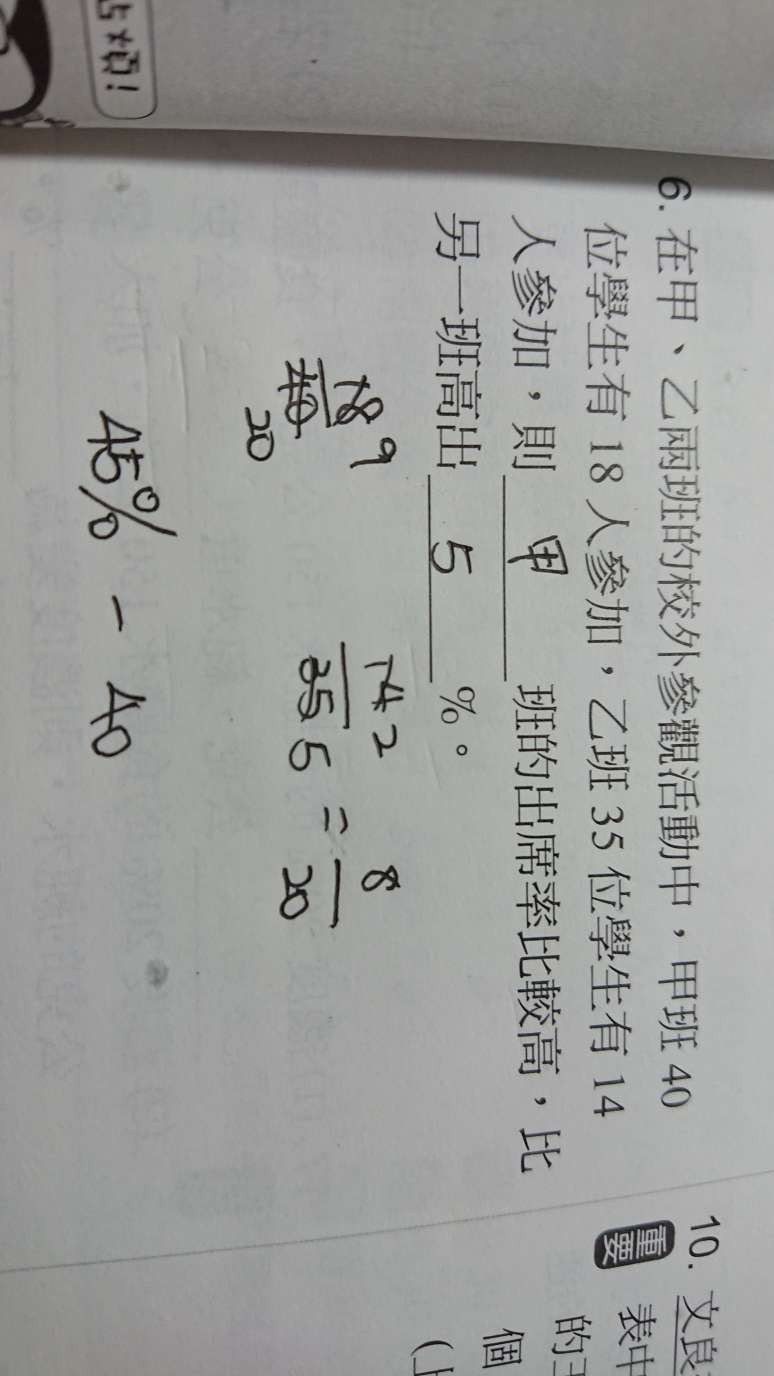 6. 在甲、乙兩班的校外參觀活動中，甲班 40
位學生有 18 人參加，乙班 35 位學生有 14
人參加，則 甲 班的出席率比較高，比
另一班高出 5 %。
18 9
40
20
14 2
35 5
= 8
20
45% - 40
10. 文良
重要
表中
的
個
(